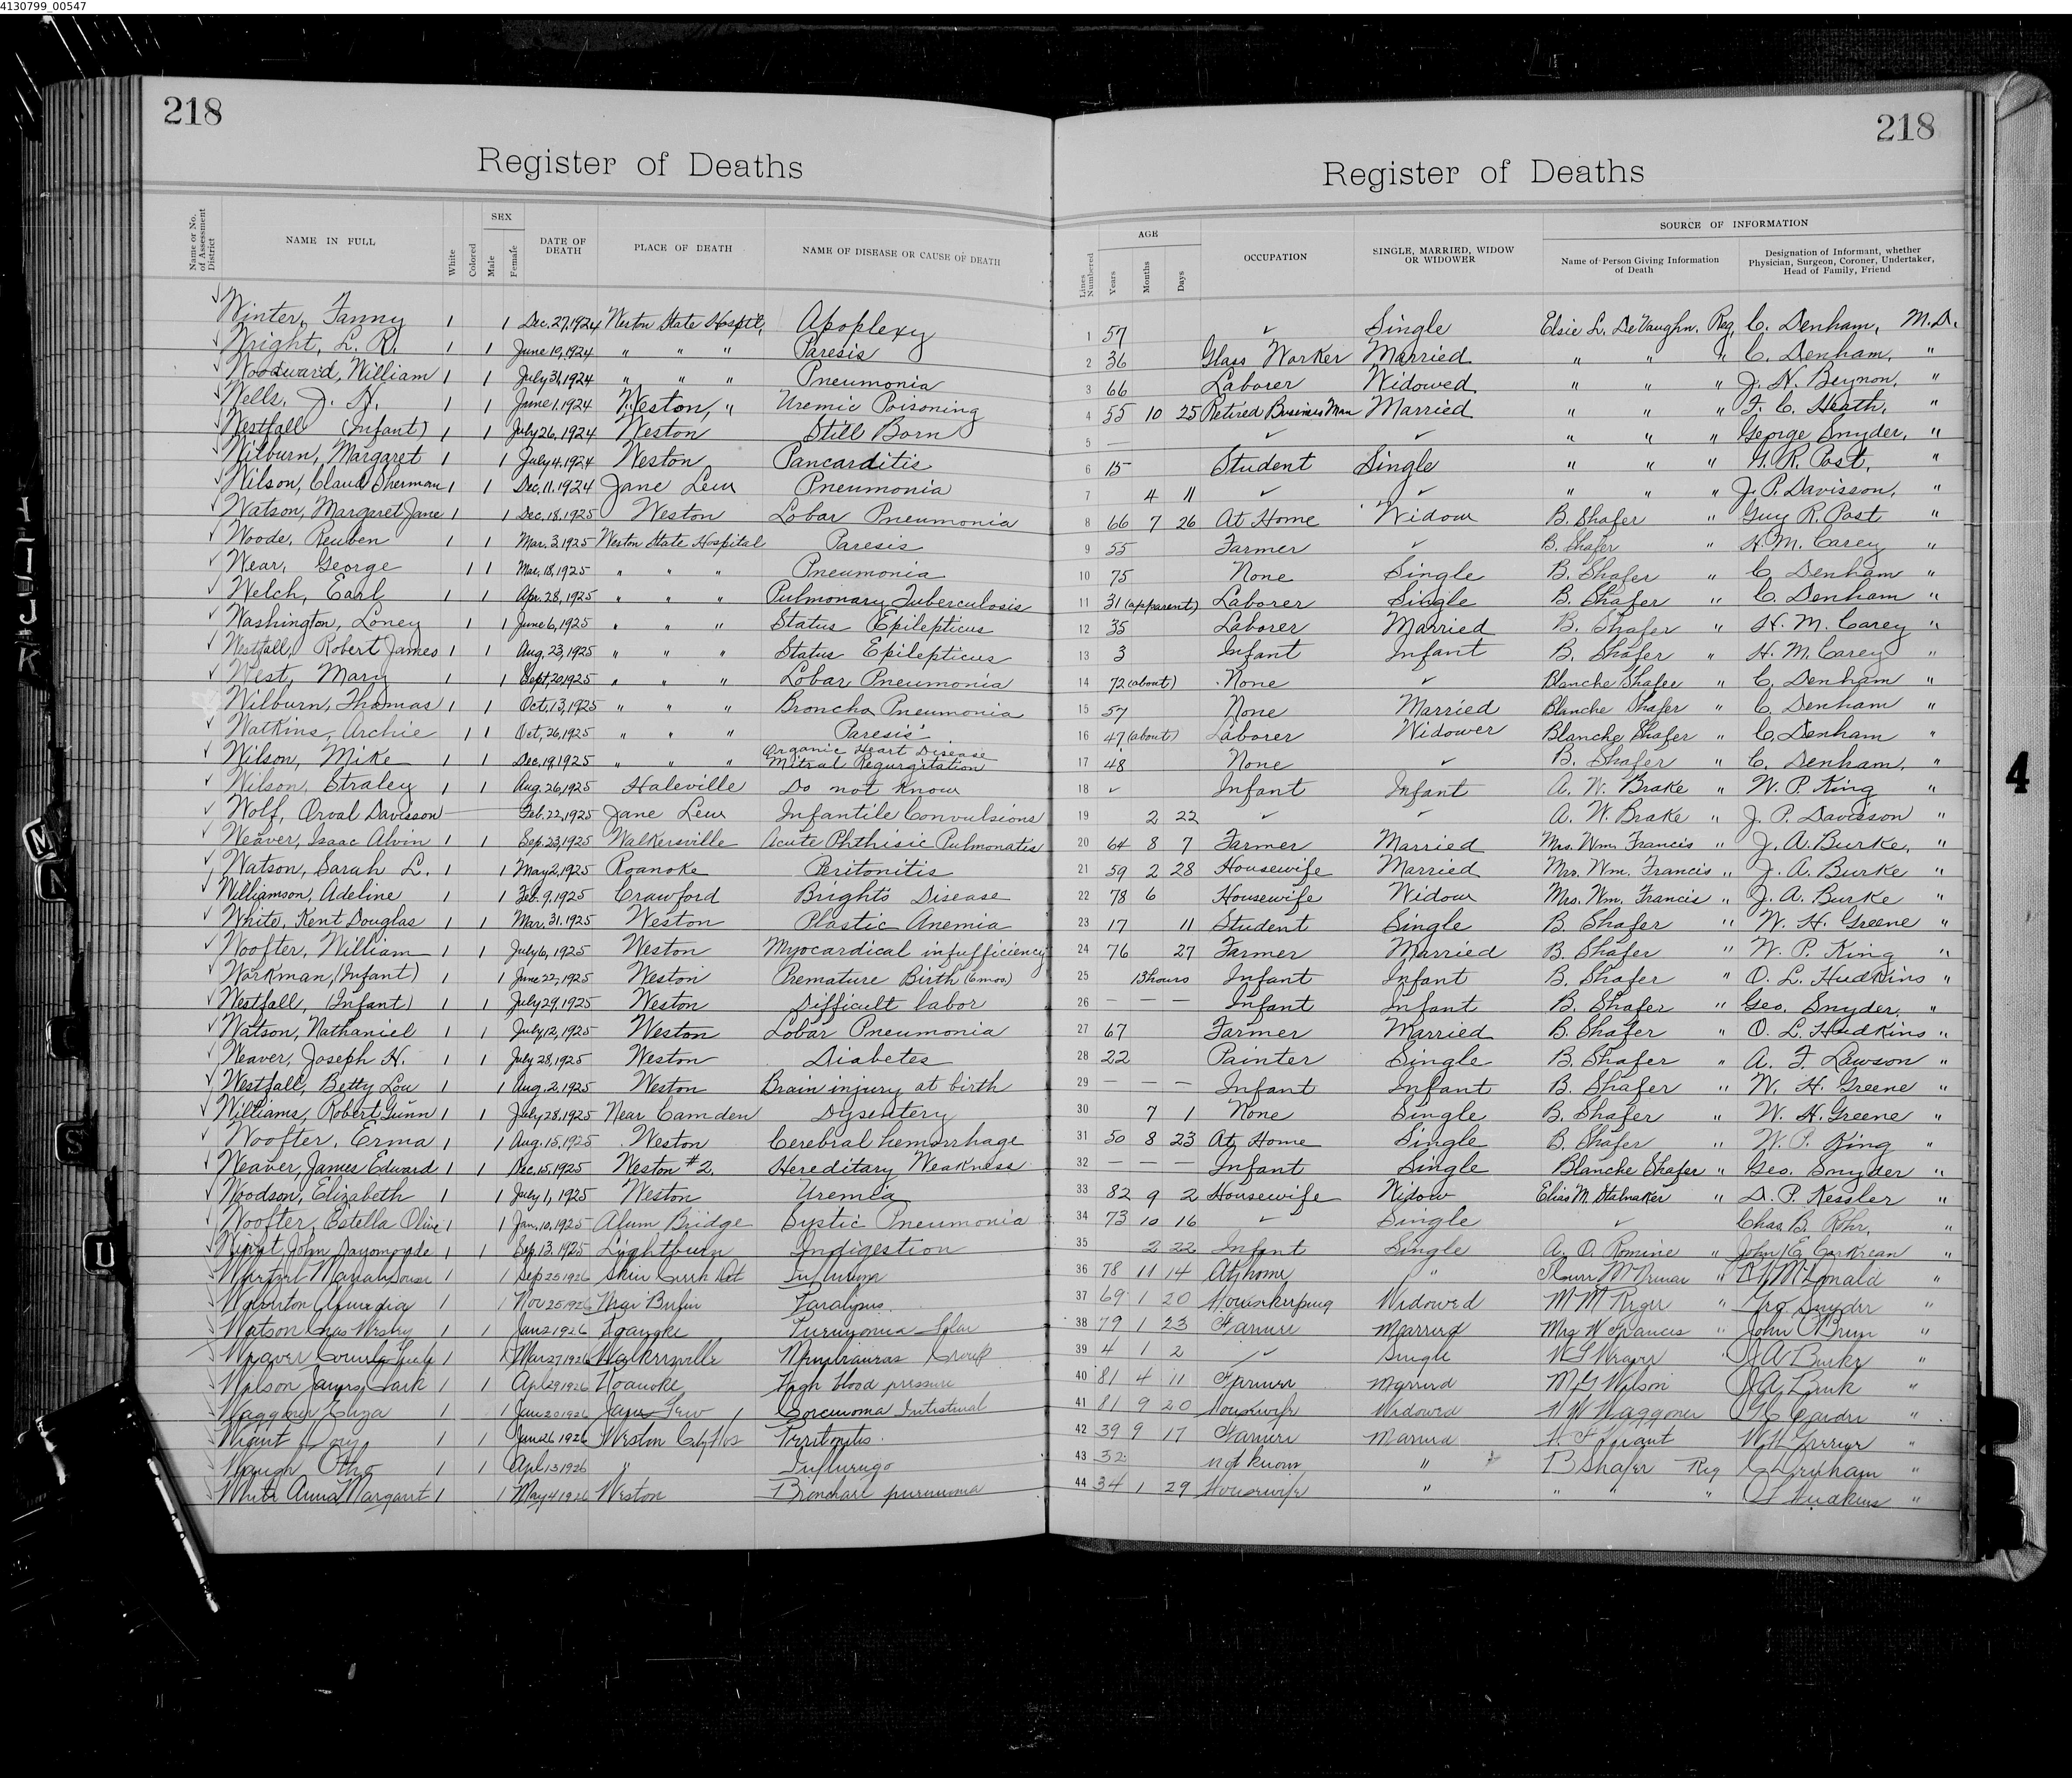 4130799_00547
218
Register of Deaths
Name or No. of Assessment District
NAME IN FULL
White
Colored
SEX
Male
Female
DATE OF DEATH
PLACE OF DEATH
NAME OF DISEASE OR CAUSE OF DEATH
Winter, Fanny 1 1 Dec. 27, 1924 Weston State Hosptl, Apoplexy
Wright, L. R. 1 1 June 19, 1924 " " " Paresis
Woodward, William 1 1 July 31, 1924 " " " Pneumonia
Wells, J. H. 1 1 June 1, 1924 Weston, " Uremic Poisoning
Westfall (Infant) 1 1 July 26, 1924 Weston Still Born
Wilburn, Margaret 1 1 July 4, 1924 Weston Pancarditis
Wilson, Claud Sherman 1 1 Dec. 11, 1924 Jane Lew Pneumonia
Watson, Margaret Jane 1 1 Dec. 18, 1925 Weston Lobar Pneumonia
Woode, Reuben 1 1 Mar. 3, 1925 Weston State Hospital Paresis
Wear, George 1 1 Mar. 18, 1925 " " " Pneumonia
Welch, Earl 1 1 Apr. 28, 1925 " " " Pulmonary Tuberculosis
Washington, Loney 1 1 June 6, 1925 " " " Status Epilepticus
Westfall, Robert James 1 1 Aug. 23, 1925 " " " Status Epilepticus
West, Mary 1 1 Sept. 20, 1925 " " " Lobar Pneumonia
Wilburn, Thomas 1 1 Oct. 13, 1925 " " " Broncho Pneumonia
Watkins, Archie 1 1 Oct. 26, 1925 " " " Paresis
Wilson, Mike 1 1 Dec. 19, 1925 " " " Organic Heart Disease Mitral Regurgitation
Wilson, Straley 1 1 Aug. 26, 1925 Haleville Do not know
Wolf, Orval Davisson Feb. 22, 1925 Jane Lew Infantile Convulsions
Weaver, Isaac Alvin 1 1 Sep. 23, 1925 Walkersville Acute Phthisic Pulmonatis
Watson, Sarah L. 1 1 May 2, 1925 Roanoke Peritonitis
Williamson, Adeline 1 1 Feb. 9, 1925 Crawford Brights Disease
White, Kent Douglas 1 1 Mar. 31, 1925 Weston Plastic Anemia
Woofter, William 1 1 July 6, 1925 Weston Myocardical infufficiency
Workman, (Infant) 1 1 June 22, 1925 Weston Premature Birth (6 mos.)
Westfall, (Infant) 1 1 July 29, 1925 Weston Difficult labor
Watson, Nathaniel 1 1 July 12, 1925 Weston Lobar Pneumonia
Weaver, Joseph H. 1 1 July 28, 1925 Weston Diabetes
Westfall, Betty Lou 1 1 Aug. 2, 1925 Weston Brain injury at birth
Williams, Robert Gunn 1 1 July 28, 1925 Near Camden Dysentery
Woofter, Erma 1 1 Aug. 15, 1925 Weston Cerebral hemorrhage
Weaver, James Edward 1 1 Dec. 15, 1925 Weston #2. Hereditary Weakness
Woodson, Elizabeth 1 1 July 1, 1925 Weston Uremia
Woofter, Estella Olive 1 1 Jan. 10, 1925 Alum Bridge Systic Pneumonia
John 1 1 Sep. 13, 1925 Lightburn Indigestion
1 1 Sep 25 1926 Skin Creek Dist
1 1 Nov 25 1926 Near Paralysis
Watson Chas Wesley 1 1 Jan 2 1926 Roanoke
Weaver 1 1 Mar 27 1926 Walkersville Membranous Croup
Wilson James Clark 1 1 Apl 29 1926 Roanoke High blood pressure
Waggoner Eliza 1 1 Jan 20 1926 Jane Lew Carcinoma Intestinal
Wiant 1 1 Jan 26 1926 Weston City Hos Peritonitis
Waugh Otho 1 1 Apl 13 1926 "
White Anna Margaret 1 1 May 4 1926 Weston
218
Register of Deaths
Lines Numbered
AGE
Years
Months
Days
OCCUPATION
SINGLE, MARRIED, WIDOW OR WIDOWER
SOURCE OF INFORMATION
Name of Person Giving Information of Death
Designation of Informant, whether Physician, Surgeon, Coroner, Undertaker, Head of Family, Friend
1 57 ✓ Single Elsie L. DeVaughn, Reg. C. Denham, M.D.
2 36 Glass Worker Married " " " C. Denham, "
3 66 Laborer Widowed " " " J. H. Beynon, "
4 55 10 25 Retired Business Man Married " " " F. C. Heath, "
5 — ✓ ✓ " " " George Snyder, "
6 15 Student Single " " " G. R. Post, "
7 4 11 ✓ ✓ " " " J. P. Davisson, "
8 66 7 26 At Home Widow B. Shafer " Guy R. Post "
9 55 Farmer ✓ B. Shafer " H. M. Carey "
10 75 None Single B. Shafer " C. Denham "
11 31 (apparent) Laborer Single B. Shafer " C. Denham "
12 35 Laborer Married B. Shafer " H. M. Carey "
13 3 Infant Infant B. Shafer " H. M. Carey "
14 72 (about) None ✓ Blanche Shafer " C. Denham "
15 57 None Married Blanche Shafer " C. Denham "
16 47 (about) Laborer Widower Blanche Shafer " C. Denham "
17 48 None ✓ B. Shafer " C. Denham, "
18 ✓ Infant Infant A. W. Brake " W. P. King "
19 2 22 ✓ ✓ A. W. Brake " J. P. Davisson "
20 64 8 7 Farmer Married Mrs. Wm. Francis " J. A. Burke, "
21 59 2 28 Housewife Married Mrs. Wm. Francis " J. A. Burke "
22 78 6 Housewife Widow Mrs. Wm. Francis " J. A. Burke "
23 17 11 Student Single B. Shafer " W. H. Greene "
24 76 27 Farmer Married B. Shafer " W. P. King "
25 13 hours Infant Infant B. Shafer " O. L. Hudkins "
26 — — — Infant Infant B. Shafer " Geo. Snyder, "
27 67 Farmer Married B. Shafer " O. L. Hudkins "
28 22 Painter Single B. Shafer " A. F. Lawson "
29 — — — Infant Infant B. Shafer " W. H. Greene "
30 7 1 None Single B. Shafer " W. H. Greene "
31 50 8 23 At Home Single B. Shafer " W. P. King "
32 — — — Infant Single Blanche Shafer " Geo. Snyder "
33 82 9 2 Housewife Widow Elias M. Stalnaker " D. P. Kessler "
34 73 10 16 ✓ Single ✓ Chas. B. Rohr, "
35 2 22 Infant Single A. O. Romine " John E. Corkrean "
36 78 11 14 At home " " McDonald "
37 69 1 20 Housekeeping Widowed M M Reger " Geo Snyder "
38 79 1 23 Farmer Married Mrs W Francis " John "
39 4 1 2 ✓ Single Weaver J A Burke "
40 81 4 11 Farmer Married Wilson J A Burk "
41 81 9 20 Housewife Widowed Waggoner "
42 39 9 17 Farmer Married Wiant W H Greene "
43 32 not known " B Shafer Reg C Denham "
44 34 1 29 Housewife " " " " O L Hudkins "
I
J
K
M
N
S
U
4